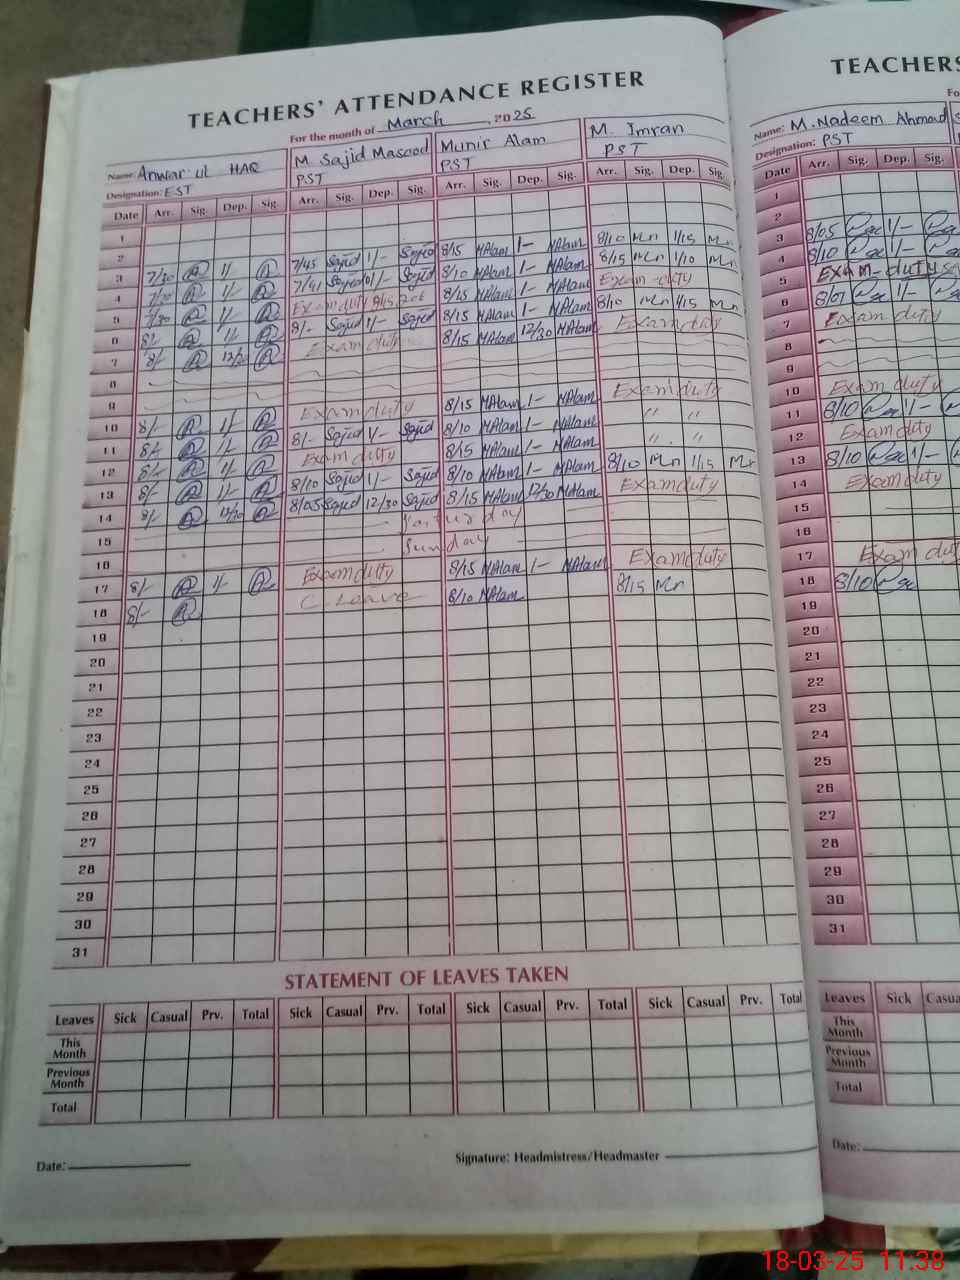 TEACHERS' ATTENDANCE REGISTER
For the month of March, 2025
Name: Anwar ul HAQ M Sajid Masood Munir Alam M. Imran
Designation: EST PST PST PST
Date Arr. Sig. Dep. Sig. Arr. Sig. Dep. Sig. Arr. Sig. Dep. Sig. Arr. Sig. Dep. Sig.
1
2
3 7/30 1/- 7/45 Sajid 1/- Sajid 8/15 MAlam 1- MAlam 8/10 Mn 1/15 Mn
4 7/30 1/- 7/41 Sajid 1/- Sajid 8/10 MAlam 1- MAlam 8/15 Mn 1/10 Mn
5 7/30 1/- Exam duty 8/15 MAlam 1- MAlam Exam-duty
6 8/- 1/- 8/- Sajid 1/- Sajid 8/15 MAlam 1- MAlam 8/10 Mn 1/15 Mn
7 8/- 12/30 Exam duty 8/15 MAlam 12/30 MAlam Exam duty
8
9
10 8/- 1/- Exam duty 8/15 MAlam 1- MAlam Exam duty
11 8/- 1/- 8/- Sajid 1/- Sajid 8/10 MAlam 1- MAlam " "
12 8/- 1/- Exam duty 8/15 MAlam 1- MAlam " "
13 8/- 1/- 8/10 Sajid 1/- Sajid 8/10 MAlam 1- MAlam 8/10 Mn 1/15 Mn
14 8/- 12/30 8/05 Sajid 12/30 Sajid 8/15 MAlam 12/30 MAlam Exam duty
15
16 Sunday
17 8/- 1/- Exam duty 8/15 MAlam 1- MAlam Exam duty
18 8/- C. Leave 8/10 MAlam 8/15 Mn
19
20
21
22
23
24
25
26
27
28
29
30
31
STATEMENT OF LEAVES TAKEN
Leaves Sick Casual Prv. Total Sick Casual Prv. Total Sick Casual Prv. Total Sick Casual Prv. Total
This Month
Previous Month
Total
Date:
Signature: Headmistress/Headmaster
TEACHERS
Name: M. Nadeem Ahmad
Designation: PST
Date Arr. Sig. Dep. Sig.
1
2
3 8/05 1/-
4 8/10 1/-
5 Exam-duty
6 8/07 1/-
7 Exam duty
8
9
10 Exam duty
11 8/10 1/-
12 Exam duty
13 8/10 1/-
14 Exam duty
15
16
17 Exam duty
18 8/10
19
20
21
22
23
24
25
26
27
28
29
30
31
Leaves Sick
This Month
Previous Month
Total
Date:
18-03-25 11:38